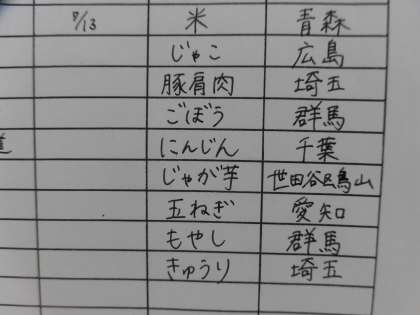 7/13 米 青森
じゃこ 広島
豚肩肉 埼玉
ごぼう 群馬
にんじん 千葉
じゃが芋 世田谷区烏山
玉ねぎ 愛知
もやし 群馬
きゅうり 埼玉